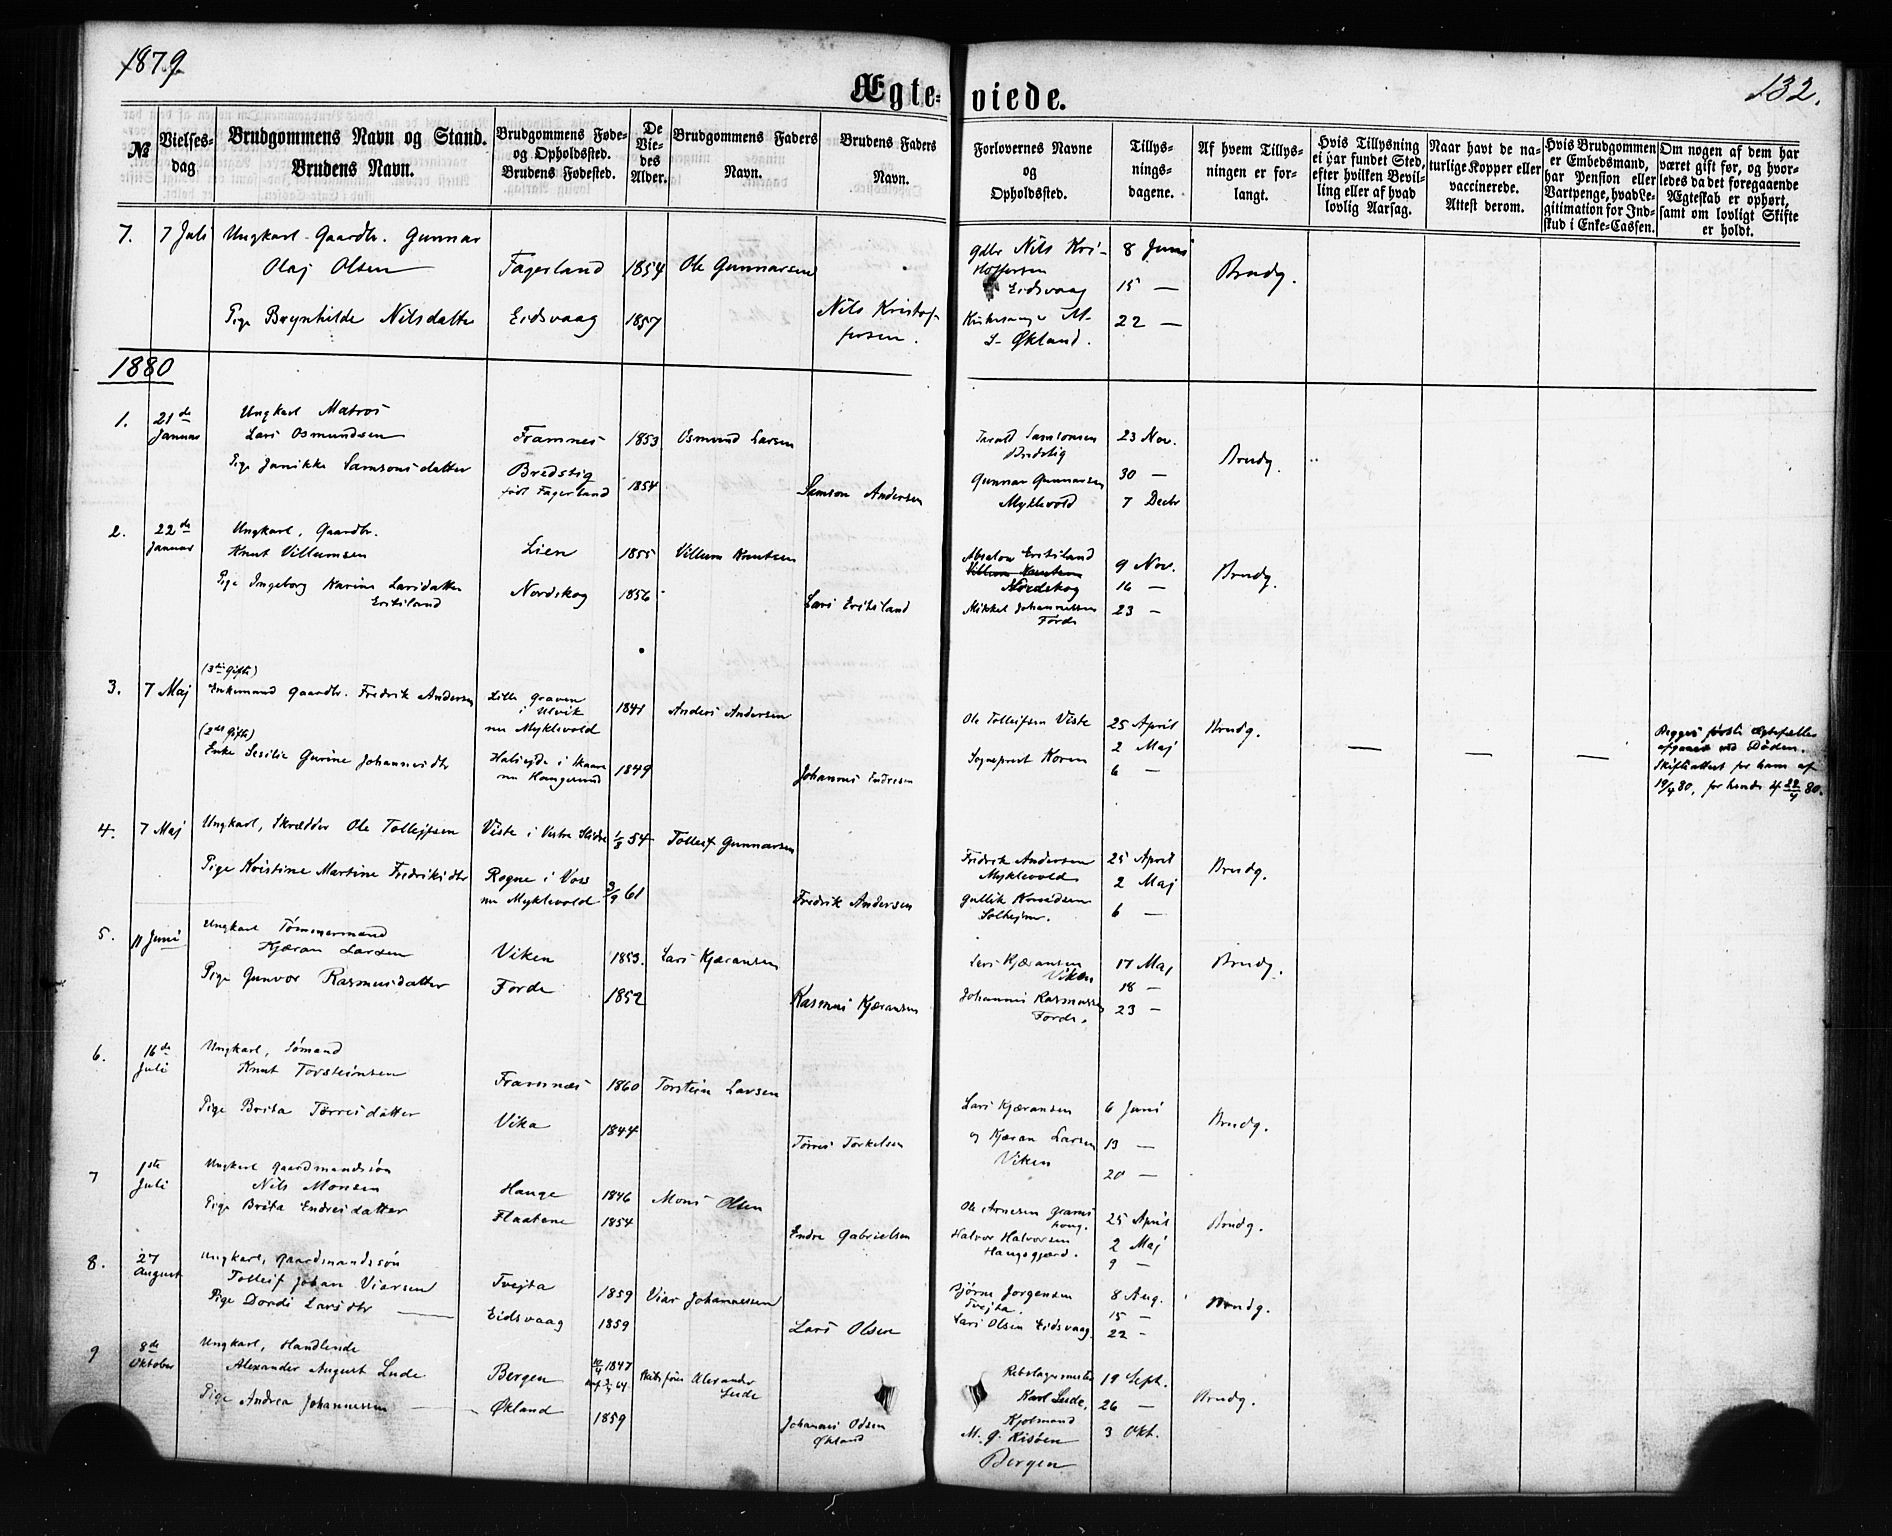 1879.
132.
Ægte-viede.
№
Vielses-dag
Brudgommens Navn og Stand.
Brudens Navn.
Brudgommens Føde- og Opholdssted.
Brudens Fødested.
De Viedes Alder.
Brudgommens Faders Navn.
Brudens Faders Navn.
Forlovernes Navne og Opholdssted.
Tillysningsdagene.
Af hvem Tillysningen er forlangt.
Hvis Tillysning ei har fundet Sted, efter hvilken Bevilling eller af hvad lovlig Aarsag.
Naar havt de naturlige Kopper eller vaccinerede. Attest derom.
Hvis Brudgommen er Embedsmand, har Pension eller Vartpenge, hvad Legitimation for Indskud i Enke-Cassen.
Om nogen af dem har været gift før, og hvorledes da det foregaaende Ægteskab er ophørt, samt om lovligt Skifte er holdt.
7. 7 Juli Ungkarl Gaardbr. Gunnar
Olaj Olsen Fagerland 1854 Ole Gunnarsen
Pige Brynhilde Nilsdatter Eidsvaag 1857 Nils Kristoffersen.
Gdbr Nils Kristoffersen
Eidsvaag
Kirkesanger M.
S. Økland.
8 Juni
15 —
22 —
Brudg.
1880
1. 21de Januar Ungkarl Matros
Lars Osmundsen Framnes 1853 Osmund Larsen
Pige Janikke Samsonsdatter Bredstig
født Fagerland 1854 Samson Andersen
Tarald Samsonsen
Bredstig
Gunnar Gunnarsen
Myklevold
23 Nov.
30 —
7 Decbr
Brudg.
2. 22de Januar Ungkarl, Gaardbr.
Knut Villumsen Lien 1855 Villum Knutsen
Pige Ingeborg Karine Larsdatter
Eritsland Nordskog 1856 Lars Eritsland
Absalon Eritsland
Villum Knutsen
Nordskog
Mikkel Johannessen
Førde
9 Nov.
16 —
23 —
Brudg.
3. 7 Maj (3die Gifte)
Enkemand Gaardbr. Fredrik Andersen Lille Graven
i Ulvik
nu Myklevold 1841 Anders Andersen
(2det Gifte)
Enke Sesilie Gurine Johannesdtr Halsejde i Skaare
nu Haugesund 1849 Johannes Endresen
Ole Tolleifsen Viste
Sogneprest Koren
25 April
2 Maj
6 —
Brudg.
— — —
Begges første Ægtefæller
afgaaet ved Døden.
Skifteattest for ham af
19/4 80, for hende af 22/4 80.
4. 7 Maj Ungkarl, Skrædder Ole Tolleifsen Viste i Vestre Slidre 1/8 54 Tolleif Gunnarsen
Pige Kristine Martine Fredriksdtr Rogne i Voss
nu Myklevold 3/9 61 Fredrik Andersen
Fredrik Andersen
Myklevold
Gullik Knudsen
Solhejm.
25 April
2 Maj
6 —
Brudg.
5. 11 Juni Ungkarl Tømmermand
Kjæran Larsen Viken 1853. Lars Kjæransen
Pige Gunvor Rasmusdatter Førde 1852 Rasmus Kjæransen
Lars Kjæransen
Viken
Johannes Rasmussen
Førde.
17 Maj
18 —
23 —
Brudg.
6. 16de Juli Ungkarl, Sømand
Knut Torsteinsen Framnæs 1860 Torstein Larsen
Pige Brita Tørresdatter Vika 1844 Tørres Torkelsen
Lars Kjæransen
og Kjæran Larsen
Viken
6 Juni
13 —
20 —
Brudg.
7 1ste Juli Ungkarl Gaardmandssøn
Nils Monsen Hauge 1846 Mons Olsen
Pige Brita Endresdatter Flaatene 1854 Endre Gabrielsen
Ole Arnesen
Halvor Halvorsen
Haugsgjerd.
25 April
2 Maj
9 —
Brudg.
8. 27 August Ungkarl, Gaardmandssøn
Tolleif Johan Viarsen Tvejta 1859 Viar Johannessen
Pige Dordi Larsdtr — Eidsvaag 1859 Lars Olsen
Bjørne Jørgensen
Tvejta.
Lars Olsen Eidsvaag.
8 Aug.
15 —
22 -
Brudg.
9 8de Oktober Ungkarl, Handlende
Alexander August Lude Bergen 1847 Alexander
Lude
Pige Andrea Johannessen — Økland 1859 Johannes Odsen
Økland
Rebslagermester
Karl Lude,
Kjøbmand
M. G. Risøen
Bergen
19 Sept.
26 —
3 Okt.
Brudg.